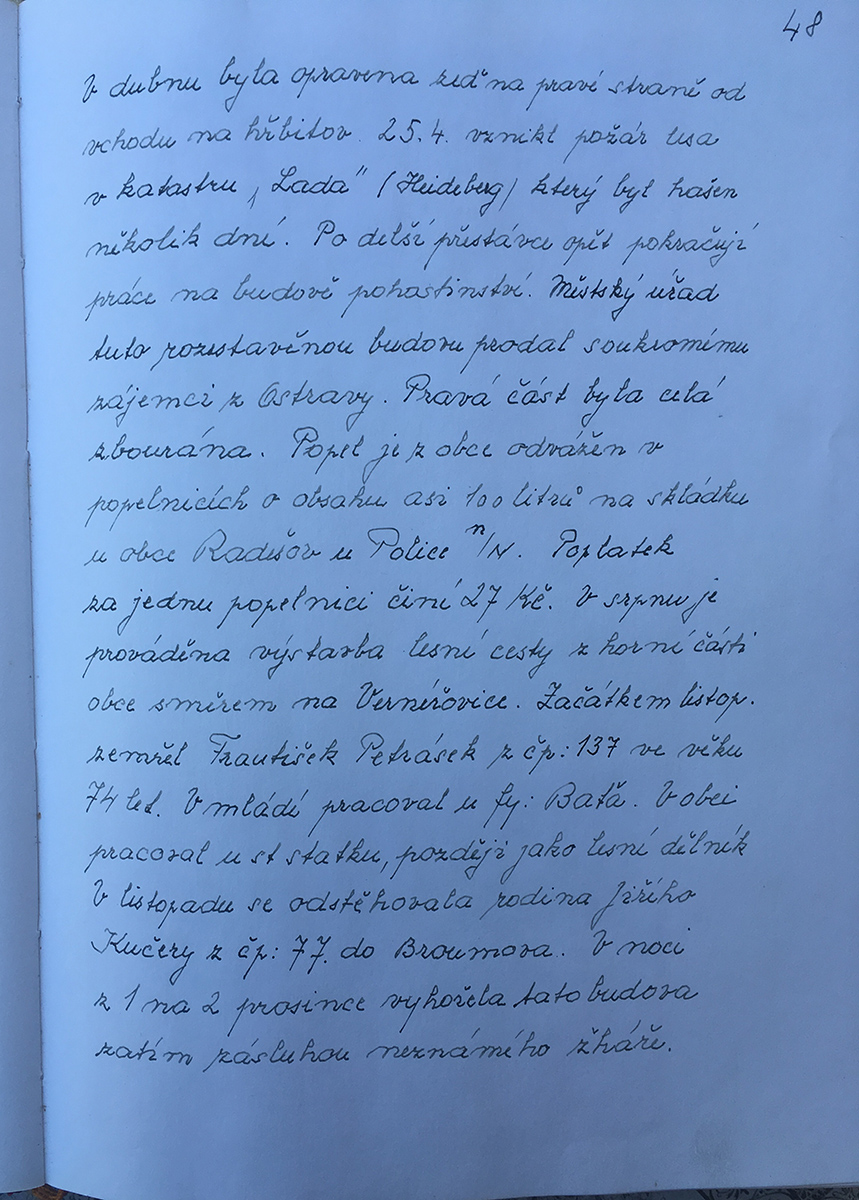 48
V dubnu byla opravena zeď na pravé straně od
vchodu na hřbitov. 25.4. vznikl požár lesa
v katastru „Lada" (Heideberg) který byl hašen
několik dní. Po delší přestávce opět pokračují
práce na budově pohostinství. Městský úřad
tuto rozestavěnou budovu prodal soukromému
zájemci z Ostravy. Pravá část byla celá
zbourána. Popel je z obce odvážen v
popelnicích o obsahu asi 100 litrů na skládku
u obce Radešov u Police n/N. Poplatek
za jednu popelnici činí 27 Kč. V srpnu je
prováděna výstavba lesní cesty z horní části
obce směrem na Vernéřovice. Začátkem listop.
zemřel František Petrásek z čp: 137 ve věku
74 let. V mládí pracoval u fy: Baťa. V obci
pracoval u st statku, později jako lesní dělník
V listopadu se odstěhovala rodina Jiřího
Kučery z čp: 77. do Broumova. V noci
z 1 na 2 prosince vyhořela tato budova
zatím zásluhou neznámého žháře.